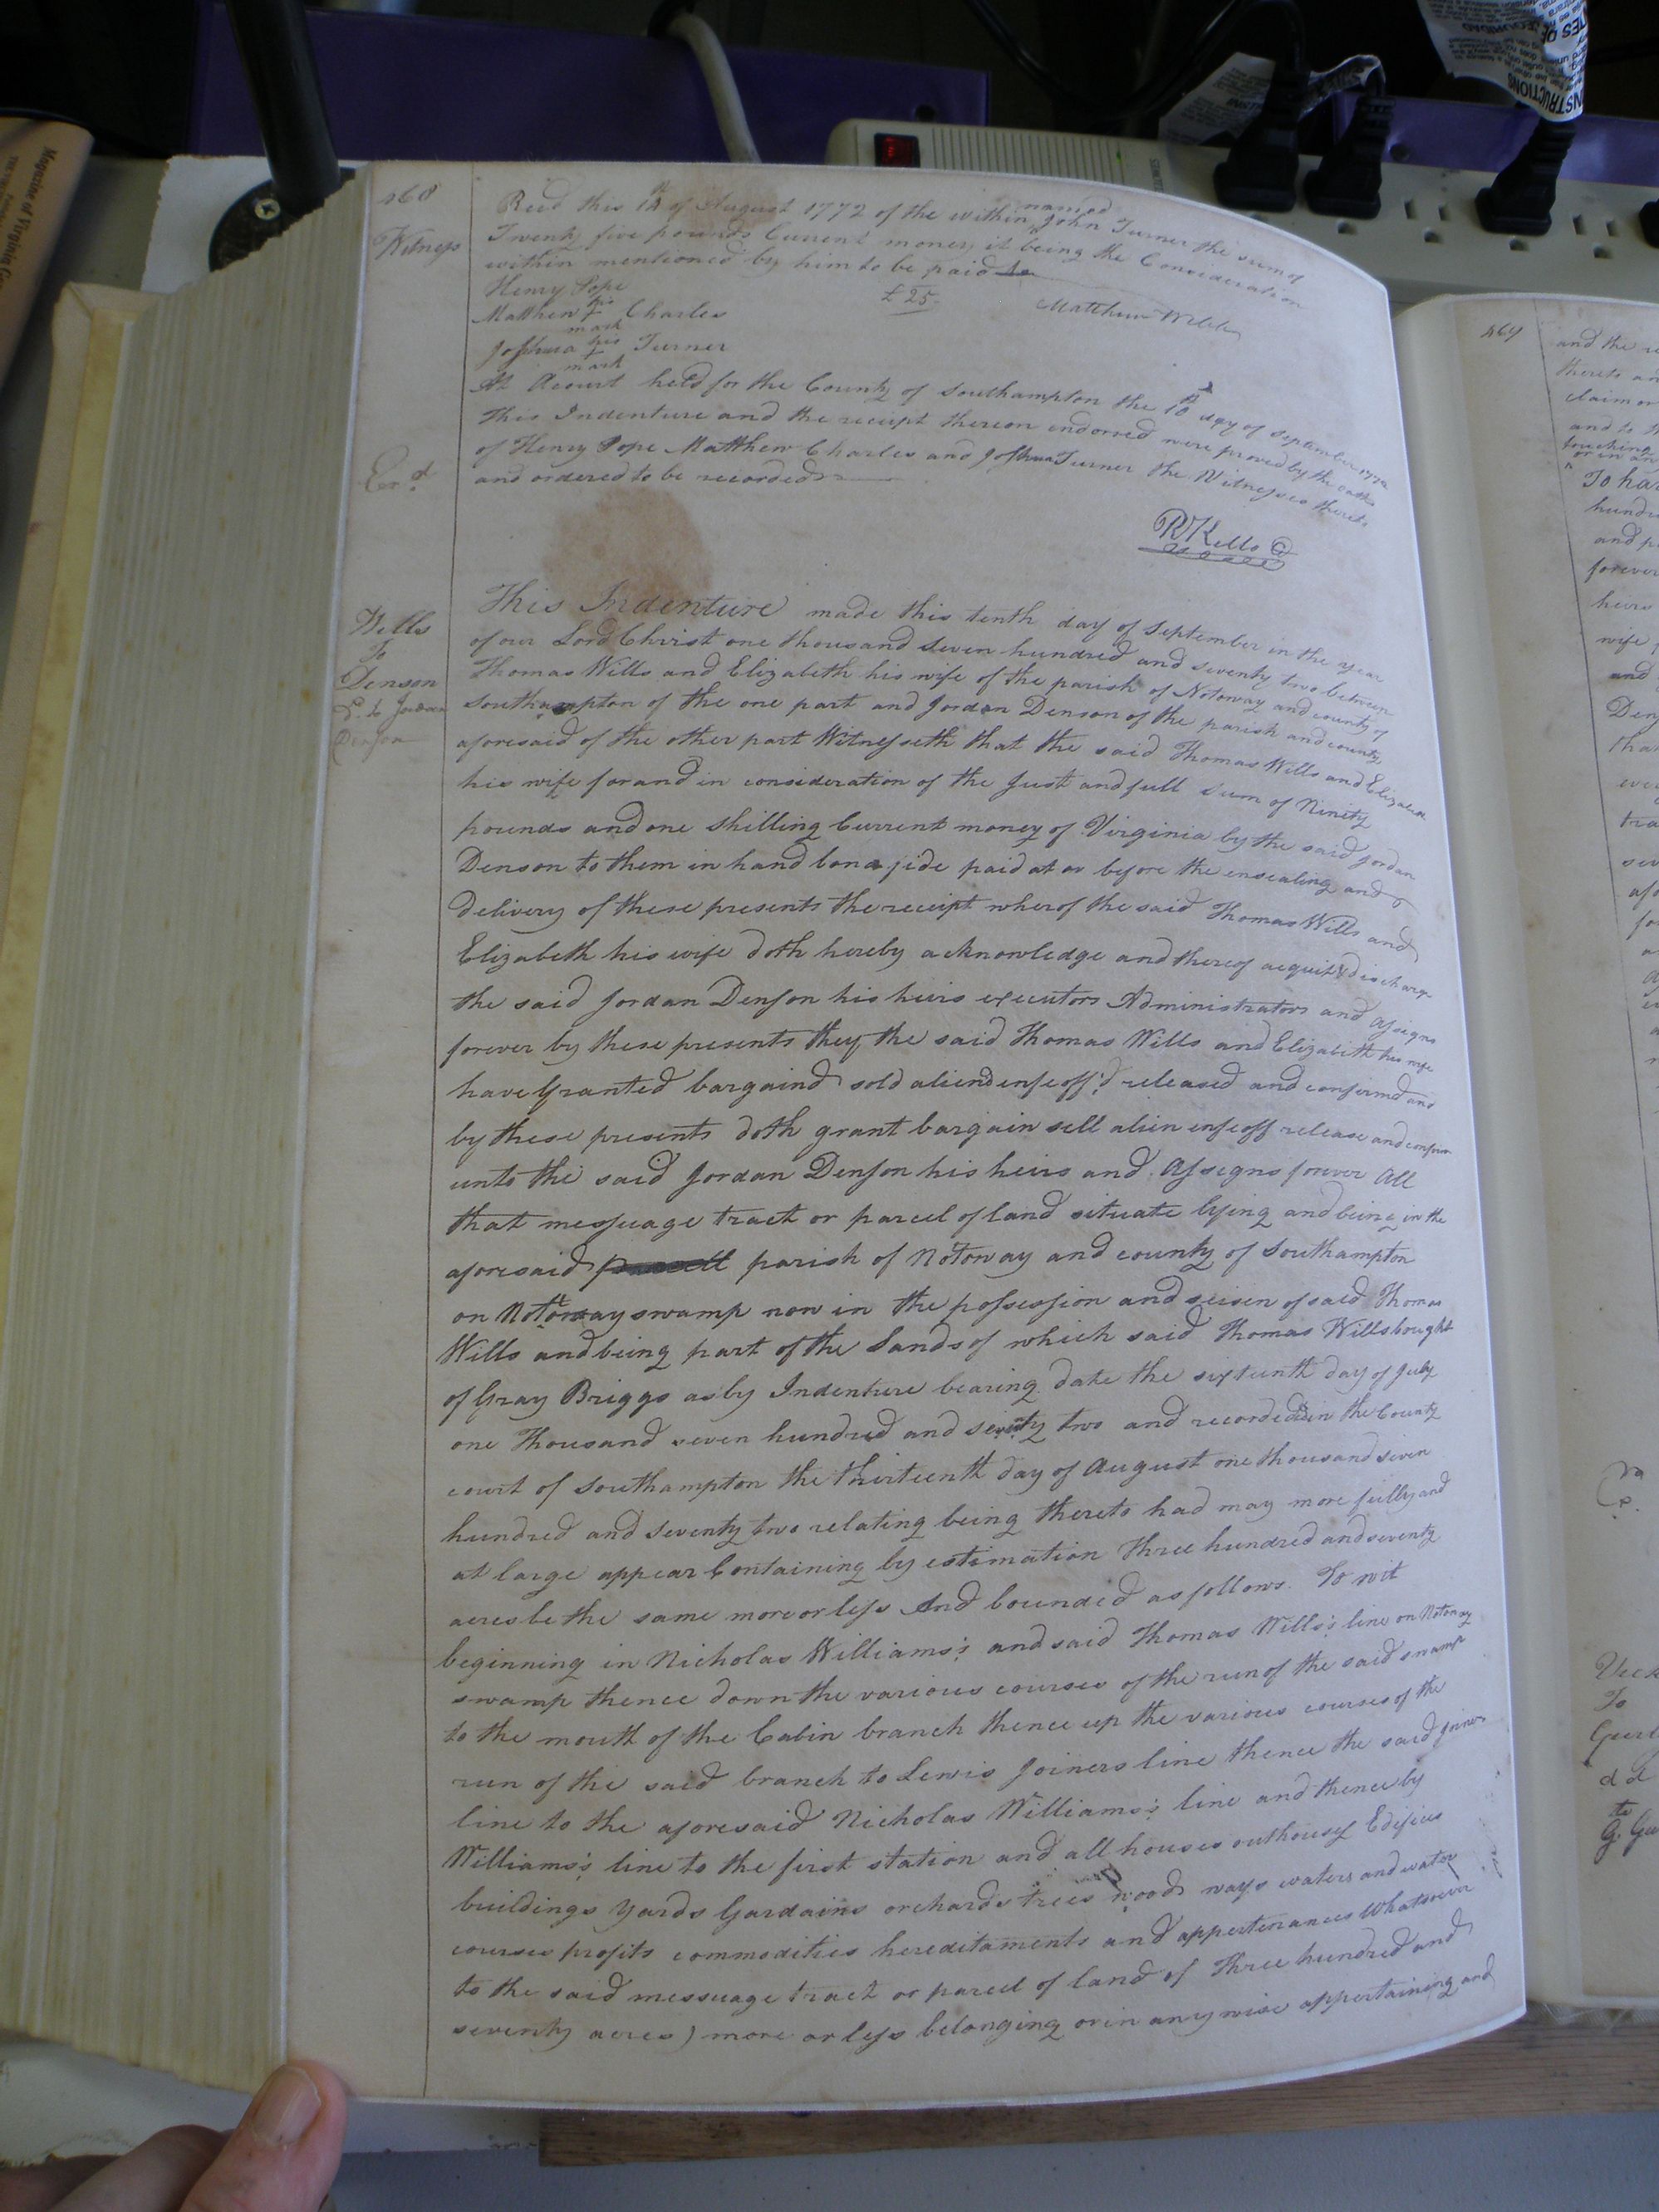 468
Recd this 14th of August 1772 of the within named John Turner the sum of
Witness
Twenty five pounds Current money it being the Consideration
within mentioned by him to be paid
Henry Pope
£25
Matthew
Matthew his Charles
mark
Joshua his Turner
mark
At Acourt held for the County of Southampton the 10th day of September 1772
This Indenture and the receipt thereon endorsed were proved by the oaths
of Henry Pope Matthew Charles and Joshua Turner the Witnesses thereto
and ordered to be recorded
Exd
RKello
This Indenture made this tenth day of September in the year
of our Lord Christ one thousand seven hundred and seventy two between
Thomas Wills and Elizabeth his wife of the parish of Notoway and county of
Southampton of the one part and Jordan Denson of the parish and county
aforesaid of the other part Witnesseth that the said Thomas Wills and Elizabeth
Wills
To
Denson
D. to Jordan
Denson
his wife for and in consideration of the Just and full sum of Ninety
pounds and one shilling Current money of Virginia by the said Jordan
Denson to them in hand bona fide paid at or before the ensealing and
delivery of these presents the receipt wherof the said Thomas Wills and
Elizabeth his wife doth hereby acknowledge and thereof acquit & discharge
the said Jordan Denson his heirs executors Administrators and Assigns
forever by these presents they the said Thomas Wills and Elizabeth his wife
have Granted bargaind sold aliend enfeoff'd released and confirmd and
by these presents doth grant bargain sell alien enfeoff release and confirm
unto the said Jordan Denson his heirs and Assigns forever All
that messuage tract or parcel of land situate lying and being in the
aforesaid parish of Notoway and county of Southampton
on Notoway swamp now in the possession and seisen of said Thomas
Wills and being part of the Lands of which said Thomas Wills bought
of Gray Briggs as by Indenture bearing date the sixteenth day of July
one Thousand seven hundred and seventy two and recorded in the County
court of Southampton the thirteenth day of August one thousand seven
hundred and seventy two relating being thereto had may more fully and
at large appear Containing by estimation Three hundred and seventy
acres be the same more or less And bounded as follows. To wit
beginning in Nicholas Williams's and said Thomas Wills's line on Notoway
swamp thence down the various courses of the run of the said swamp
to the mouth of the Cabin branch thence up the various courses of the
run of the said branch to Lewis Joiners line thence the said Joiners
line to the aforesaid Nicholas Williams's line and thence by
Williams's line to the first station and all houses outhouses Edifices
buildings yards Gardains orchards trees woods ways waters and water
courses profits commodities hereditaments and appertenances Whatsoever
to the said messuage tract or parcel of land of Three hundred and
seventy acres) more or less belonging or in any wise appertaining and
469
and the
thereto
claim or
and to
touching
or in an
To ha
and p
forever
heirs
wife
and
Den
To
INSTRUCTIONS
Magazine of Virginia